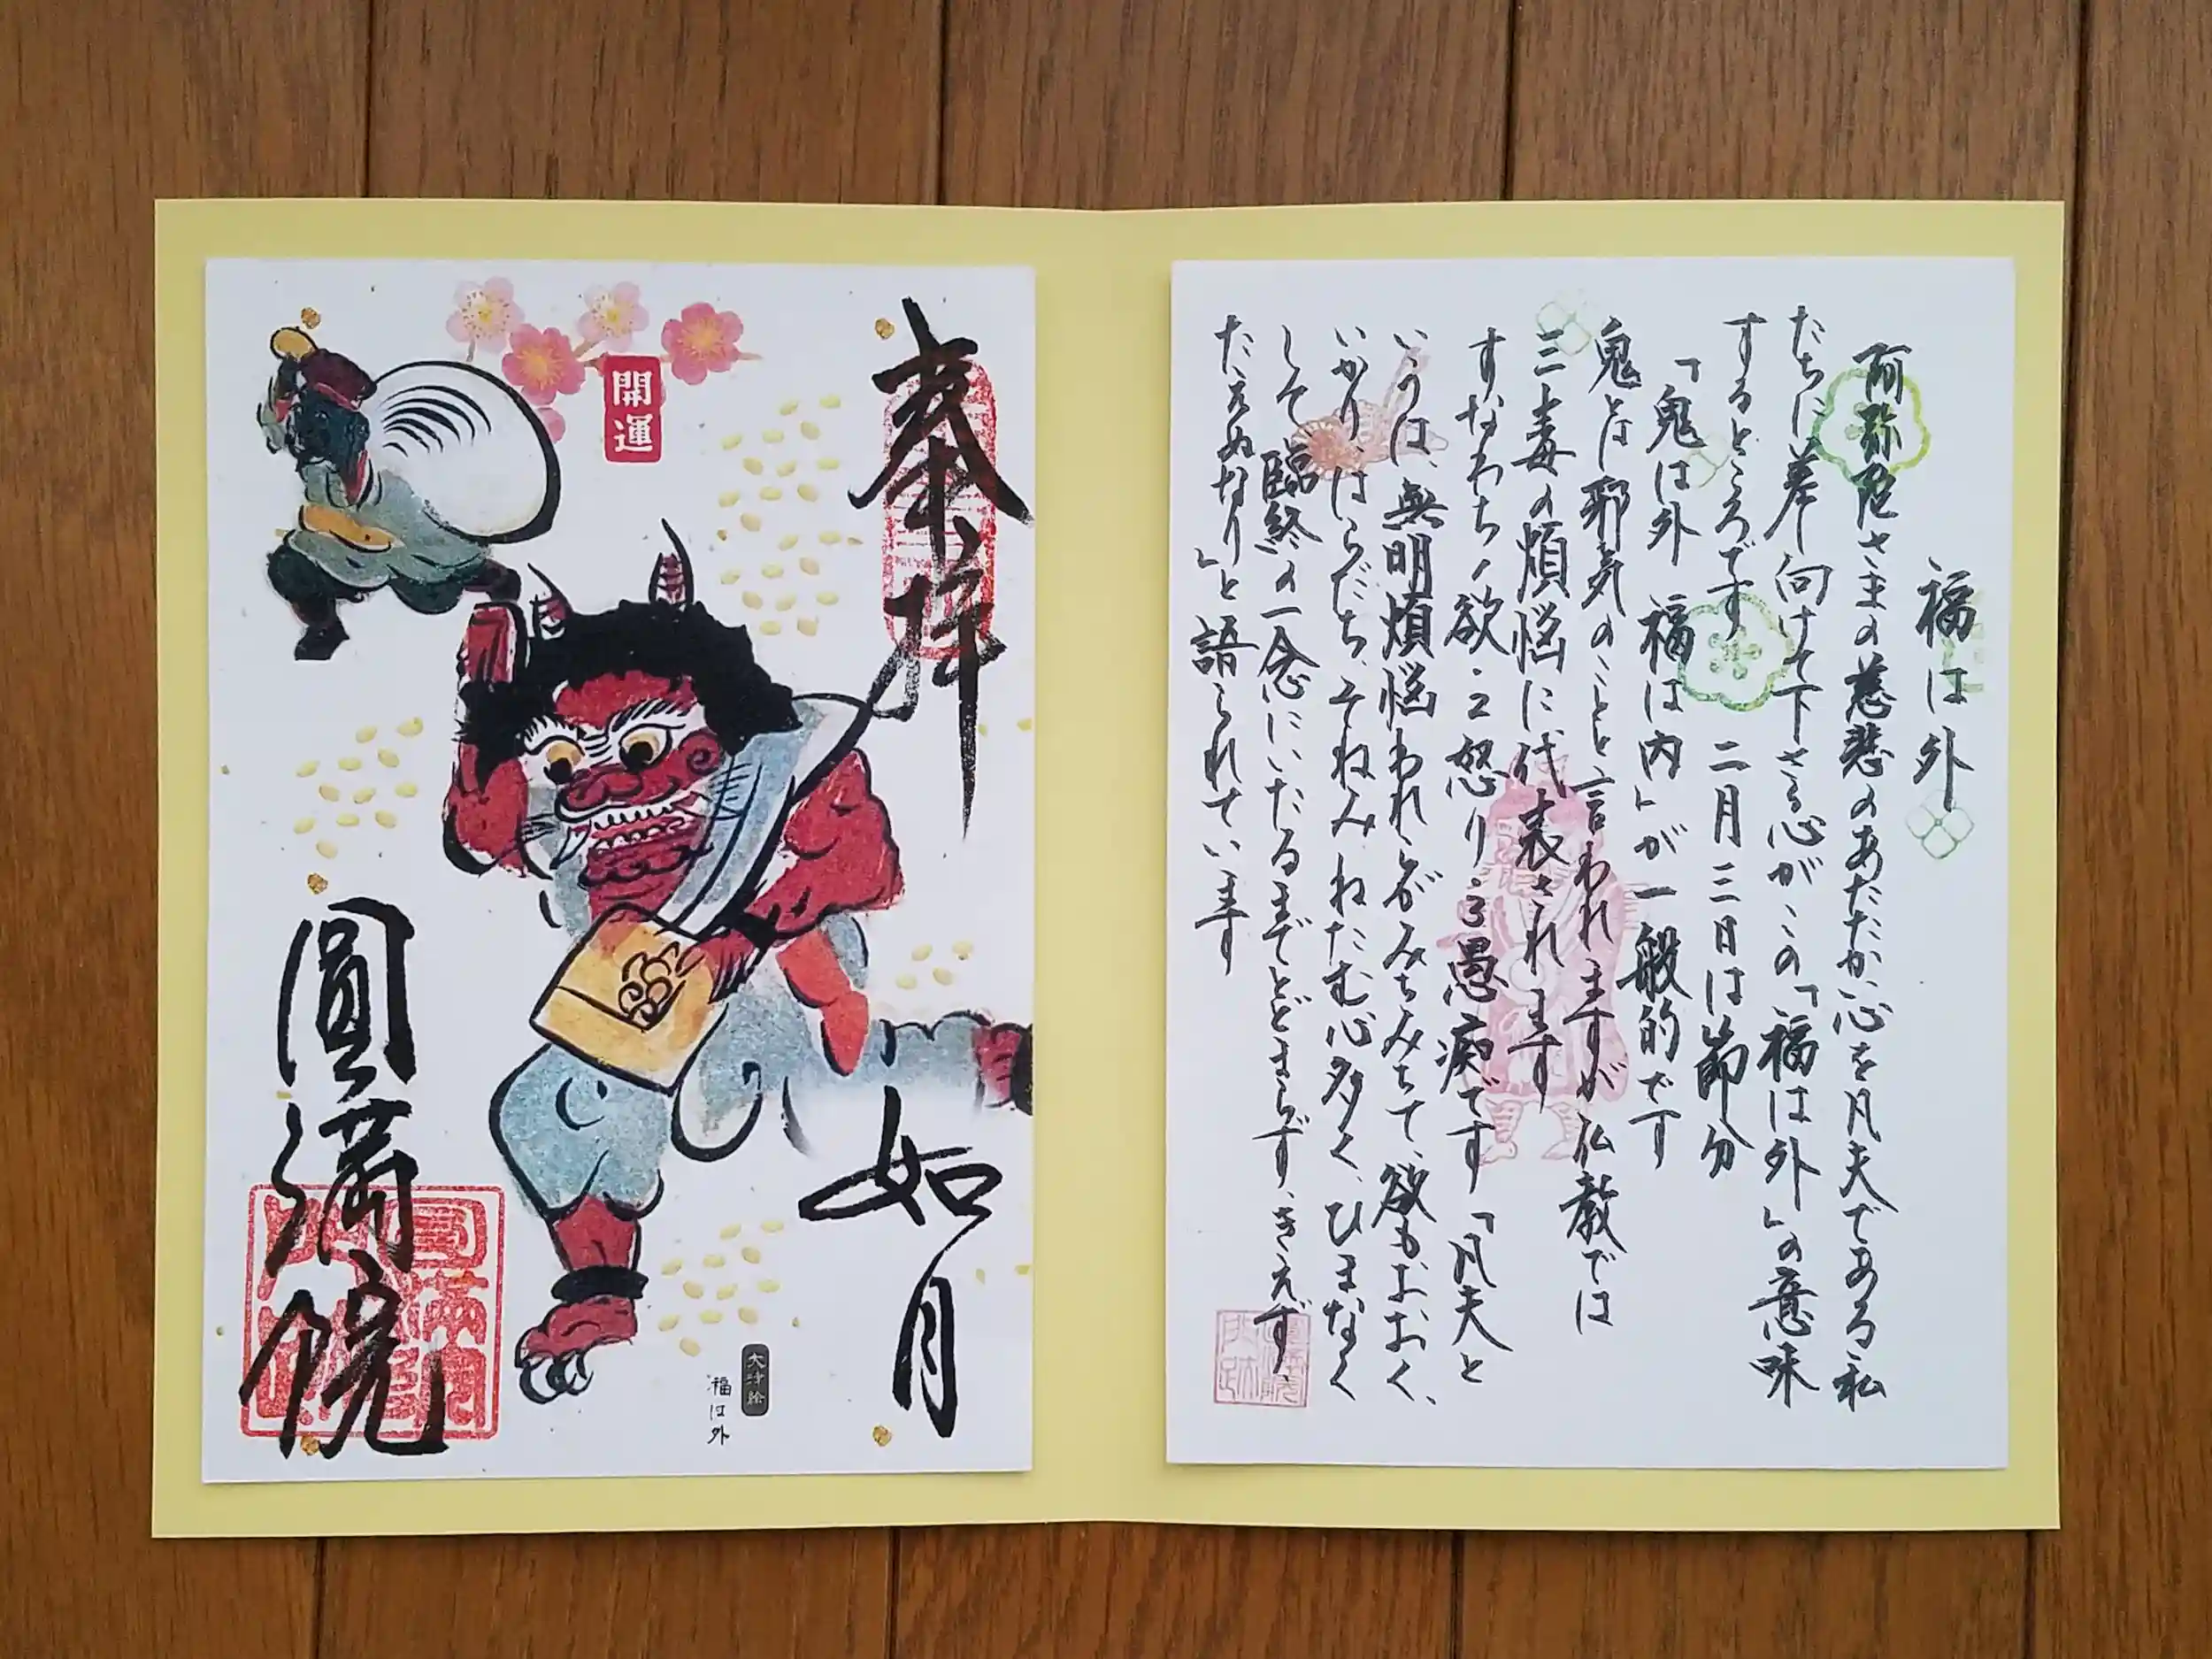 奉拝
如月
開運
大津絵
福は外
圓満院
福は外
阿弥陀さまの慈悲のあたたか心を凡夫である私
たちに差し向けて下さる心がこの「福は外」の意味
するところです 二月三日は節分
「鬼は外 福は内」が一般的です
鬼とは邪気のことと言われますが仏教では
三毒の煩悩に代表されます
すなわち1欲・2怒り・3愚痴です「凡夫と
いうは、無明煩悩われらがみちみちて、欲もおおく、
いかり、はらだち、そねみ、ねたむ心多く、ひまなく
して臨終の一念にいたるまでとどまらず、きえず、
たえぬなり」と語られています